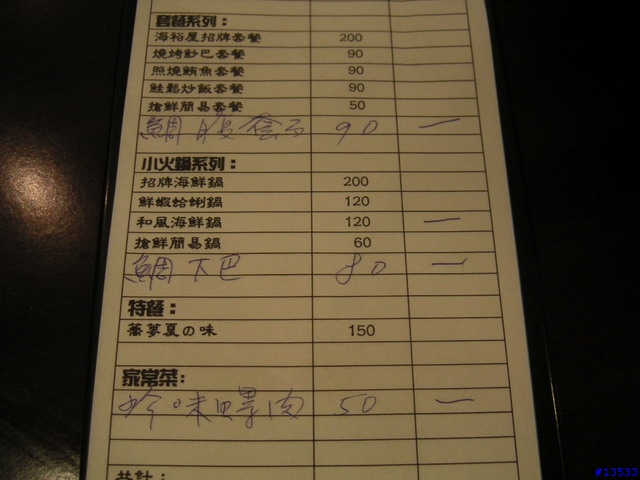 套餐系列：
海裕屋招牌套餐 200
燒烤魷巴套餐 90
照燒鮪魚套餐 90
鮭鬆炒飯套餐 90
搶鮮簡易套餐 50
鯛 90 一
小火鍋系列：
招牌海鮮鍋 200
鮮蝦蛤蜊鍋 120
和風海鮮鍋 120 一
搶鮮簡易鍋 60
鯛下巴 80 一
特餐：
蕃蔘夏の味 150
家常菜：
珍味螺肉 50 一
共計：
#13533